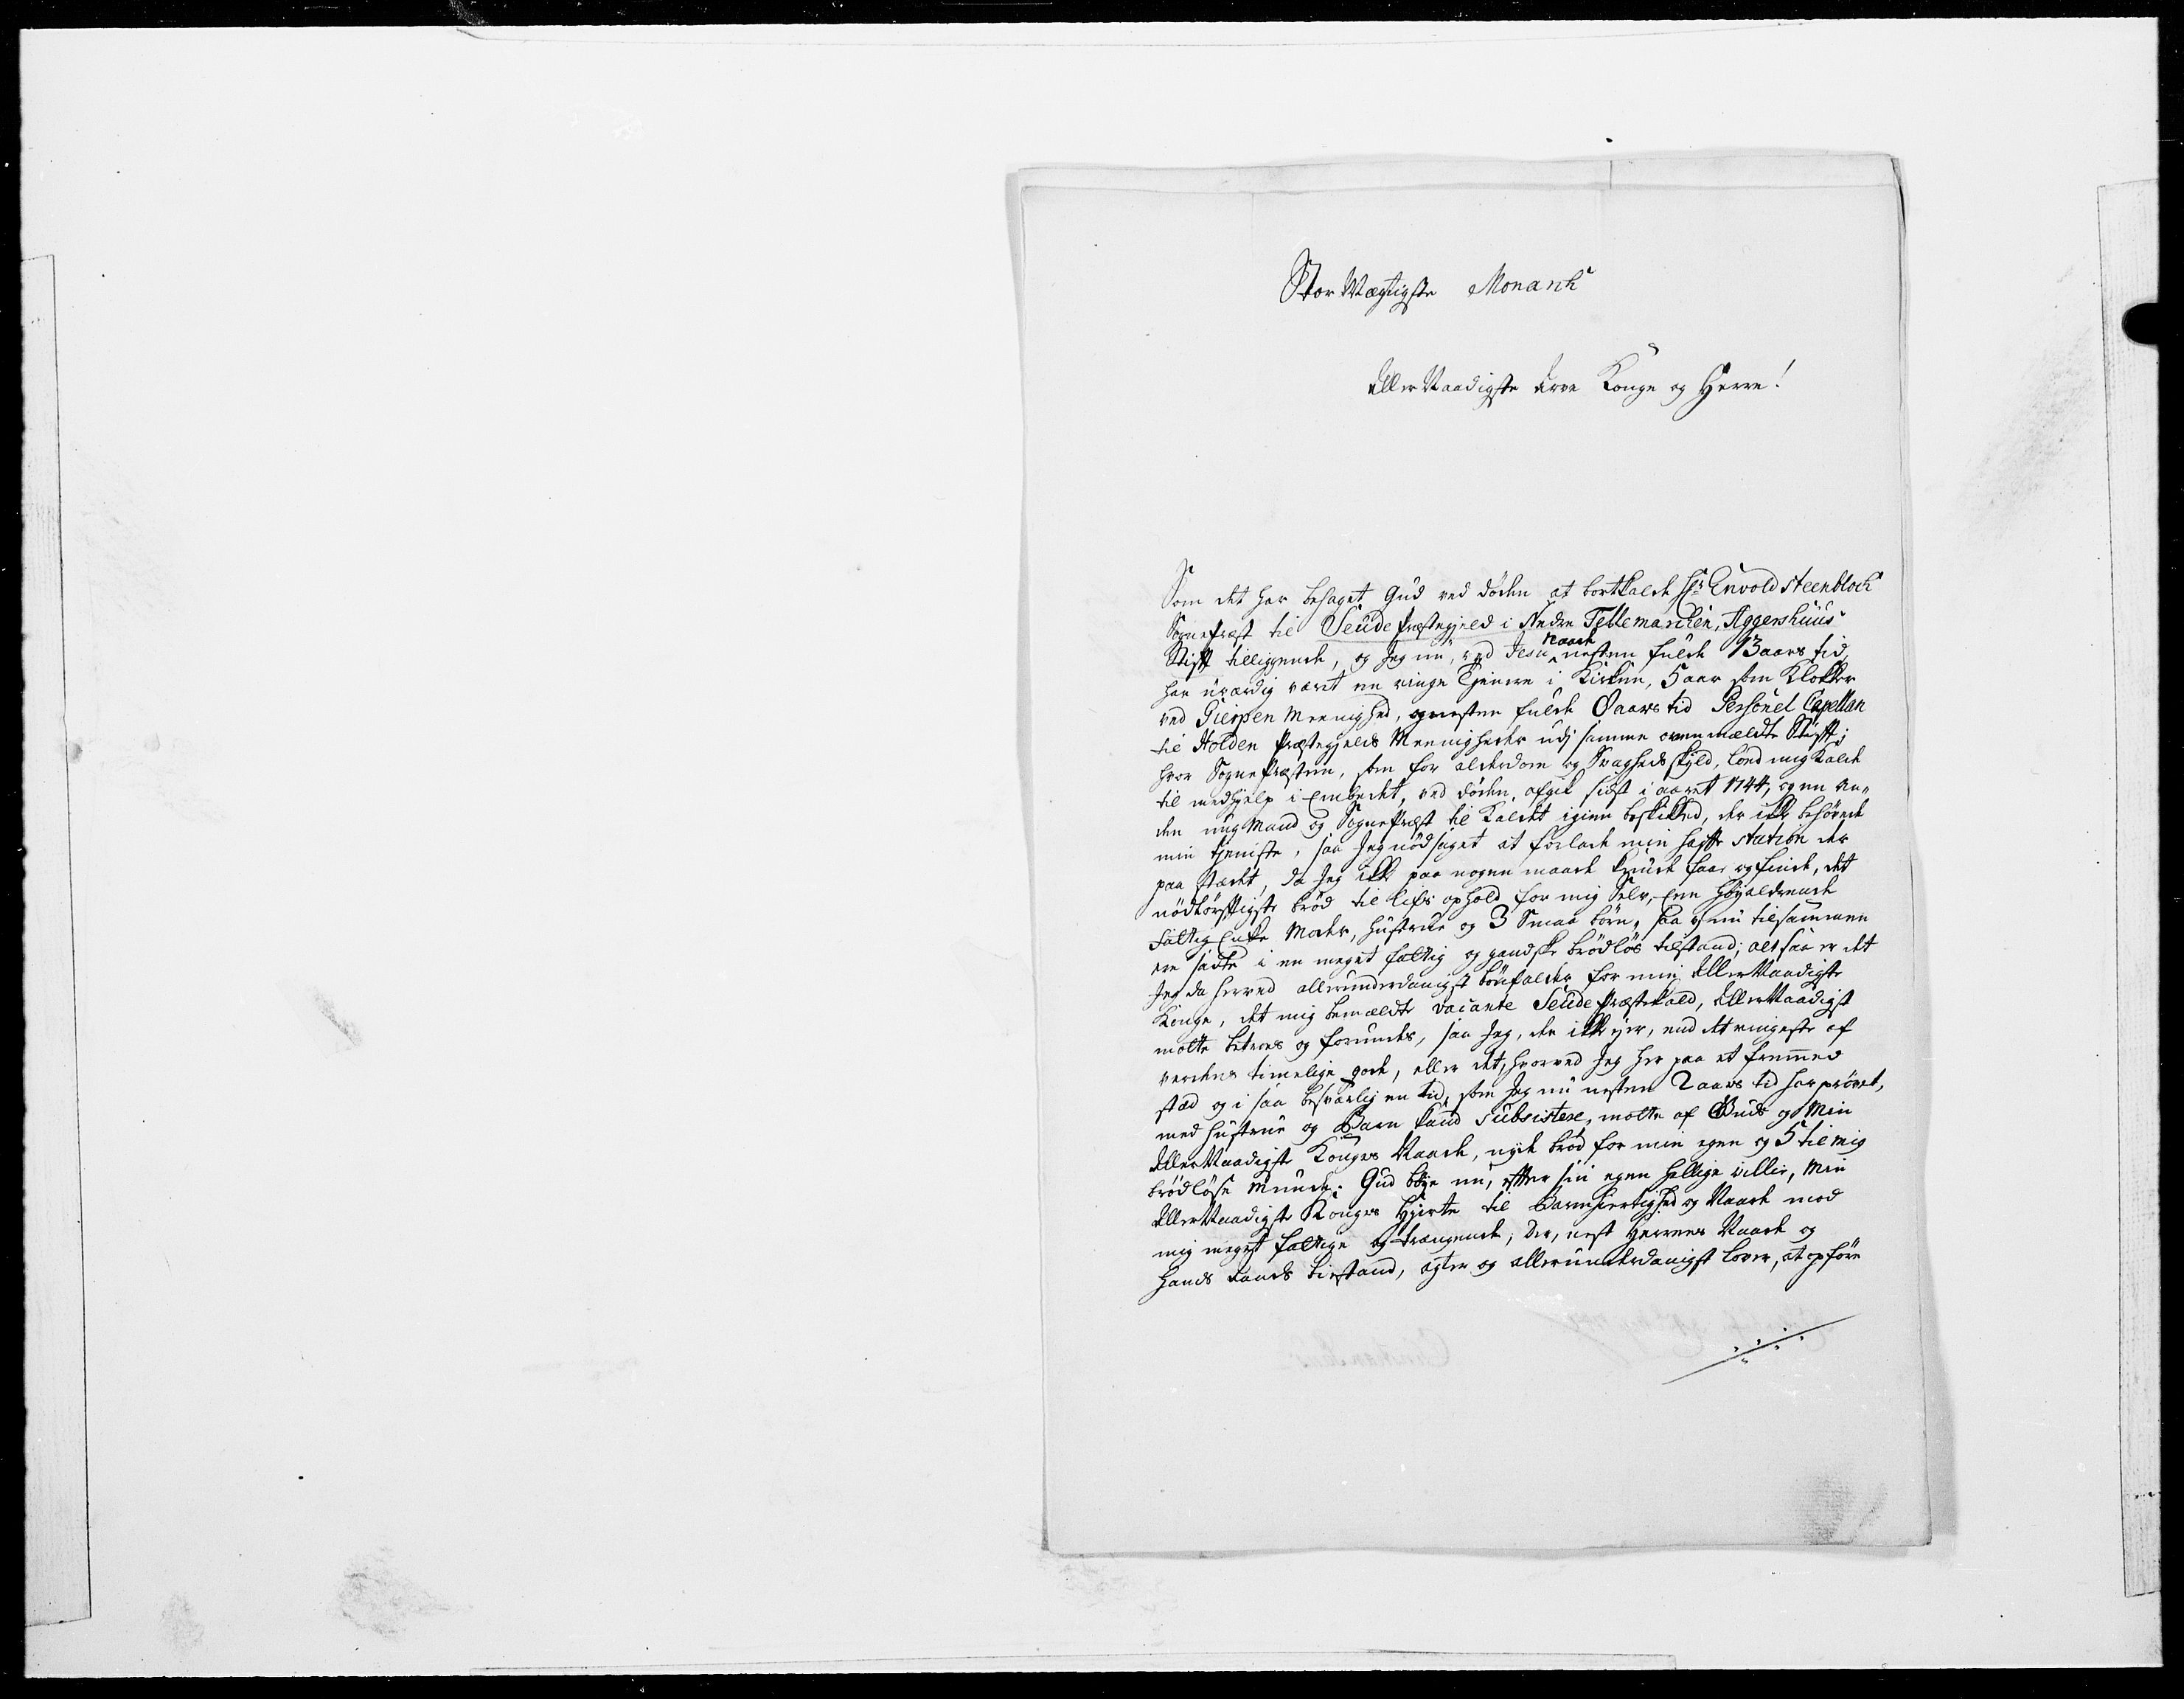 Stor Mægtigste Monark
Aller Naadigste Arve Konge og Herre!
Som det har behaget Gud ved døden at bortkalde Hr Envold Steenbloch
Sognepræst til Seude præstegjeld i Nedre Tellemarchen, Aggershuus
Stift tilliggende, og Jeg nu, ved Jesu naade nesten fulde 13 aars tid
har uværdig været en ringe Tjenere i Kirken, 5 aar som Klokker
ved Gierpen Meenighed, og nesten fulde 8 aars tid Personel Capellan
til Holden Præstegjelds Meenigheder udj samme ovenmældte Stift;
hvor Sognepræsten, som for alderdom og Svagheds skyld, lod mig kalde
til medhjelp i Embedet, ved døden, afgik sidst i aaret 1744, og en an-
den ung Mand og Sognepræst til Kaldet igien beskikked, der ikke behøvede
min tjeniste, saa Jeg nødsaget at forlade min hafte station der
paa stædet, da Jeg ikke paa nogen maade kunde faae og finde, det
nødtørftigste brød til lifs ophold for mig Selv, Een høyaldrende
fattig Enke Moder, hustrue og 3 Smaa børn, saa vj nu tilsammen
ere satte i en meget fattig og gandske brødløs tilstand; alt saa er det
Jeg da herved allerunderdanigst bønfalder for min AllerNaadigste
Konge, det mig bemældte vacante Seude Præstekald, AllerNaadigst
motte betroes og forundes, saa Jeg, der ikke ejer, end det ringeste af
verdens timelige gode, eller det, hvorved Jeg her paa et fremmed
stæd og i saa besværlig en tid, som Jeg nu nesten 2 aars tid har prøvet,
med hustrue og Barn kand subsistere, motte af Guds og Min
AllerNaadigste Konges Naade, nyde brød for min egen og 5 til mig
brødløse Munde; Gud bøye nu, efter sin egen hellige villie, Min
AllerNaadigste Konges Hjerte til Barmhjertighed og Naade mod
mig meget fattige og trængende, der, nest Herrens Naade og
hans Aands bistand, agter og allerunderdanigst lover, at opføre